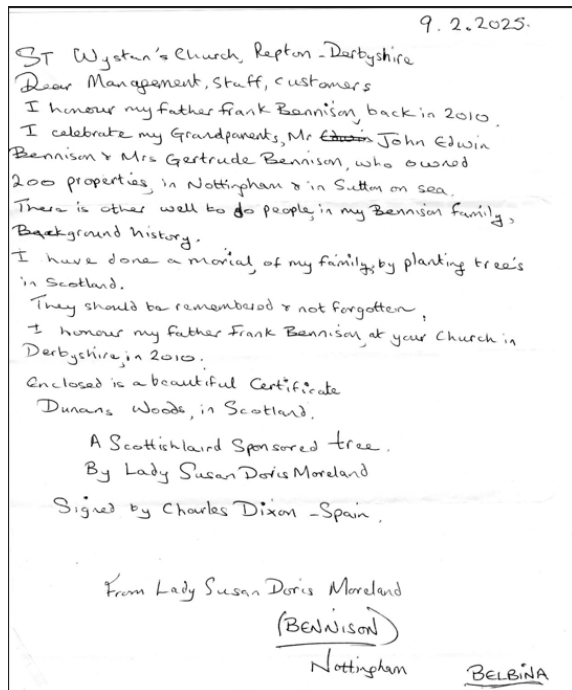 9.2.2025.
ST Wystan's Church, Repton - Derbyshire
Dear Management, Staff, Customers
I honour my father Frank Bennison, back in 2010.
I celebrate my Grandparents, Mr Edwin John Edwin
Bennison & Mrs Gertrude Bennison, who owned
200 properties, in Nottingham & in Sutton on sea.
There is other well to do people, in my Bennison family,
Background history.
I have done a morial, of my family, by planting tree's
in Scotland.
They should be remembered & not forgotten,
I honour my father Frank Bennison, at your Church in
Derbyshire, in 2010.
Enclosed is a beautiful Certificate
Dunans Woods, in Scotland.
A Scottishlaird Sponsored tree.
By Lady Susan Doris Moreland
Signed by Charles Dixon - Spain.
From Lady Susan Doris Moreland
(BENNISON)
Nottingham
BELBINA